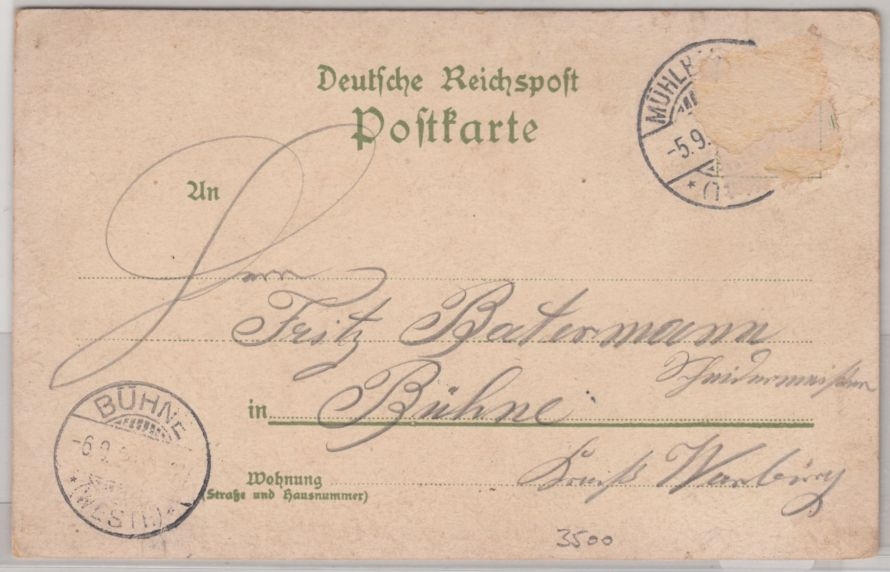 Deutsche Reichspost
Postkarte
MÜHLH
-5.9.
An
Herrn
Fritz Batermann
Schneidermeister
in Bühne
BÜHNE
-6.9.
(WESTF.)
Wohnung
(Straße und Hausnummer)
Kreiß Warburg
3500